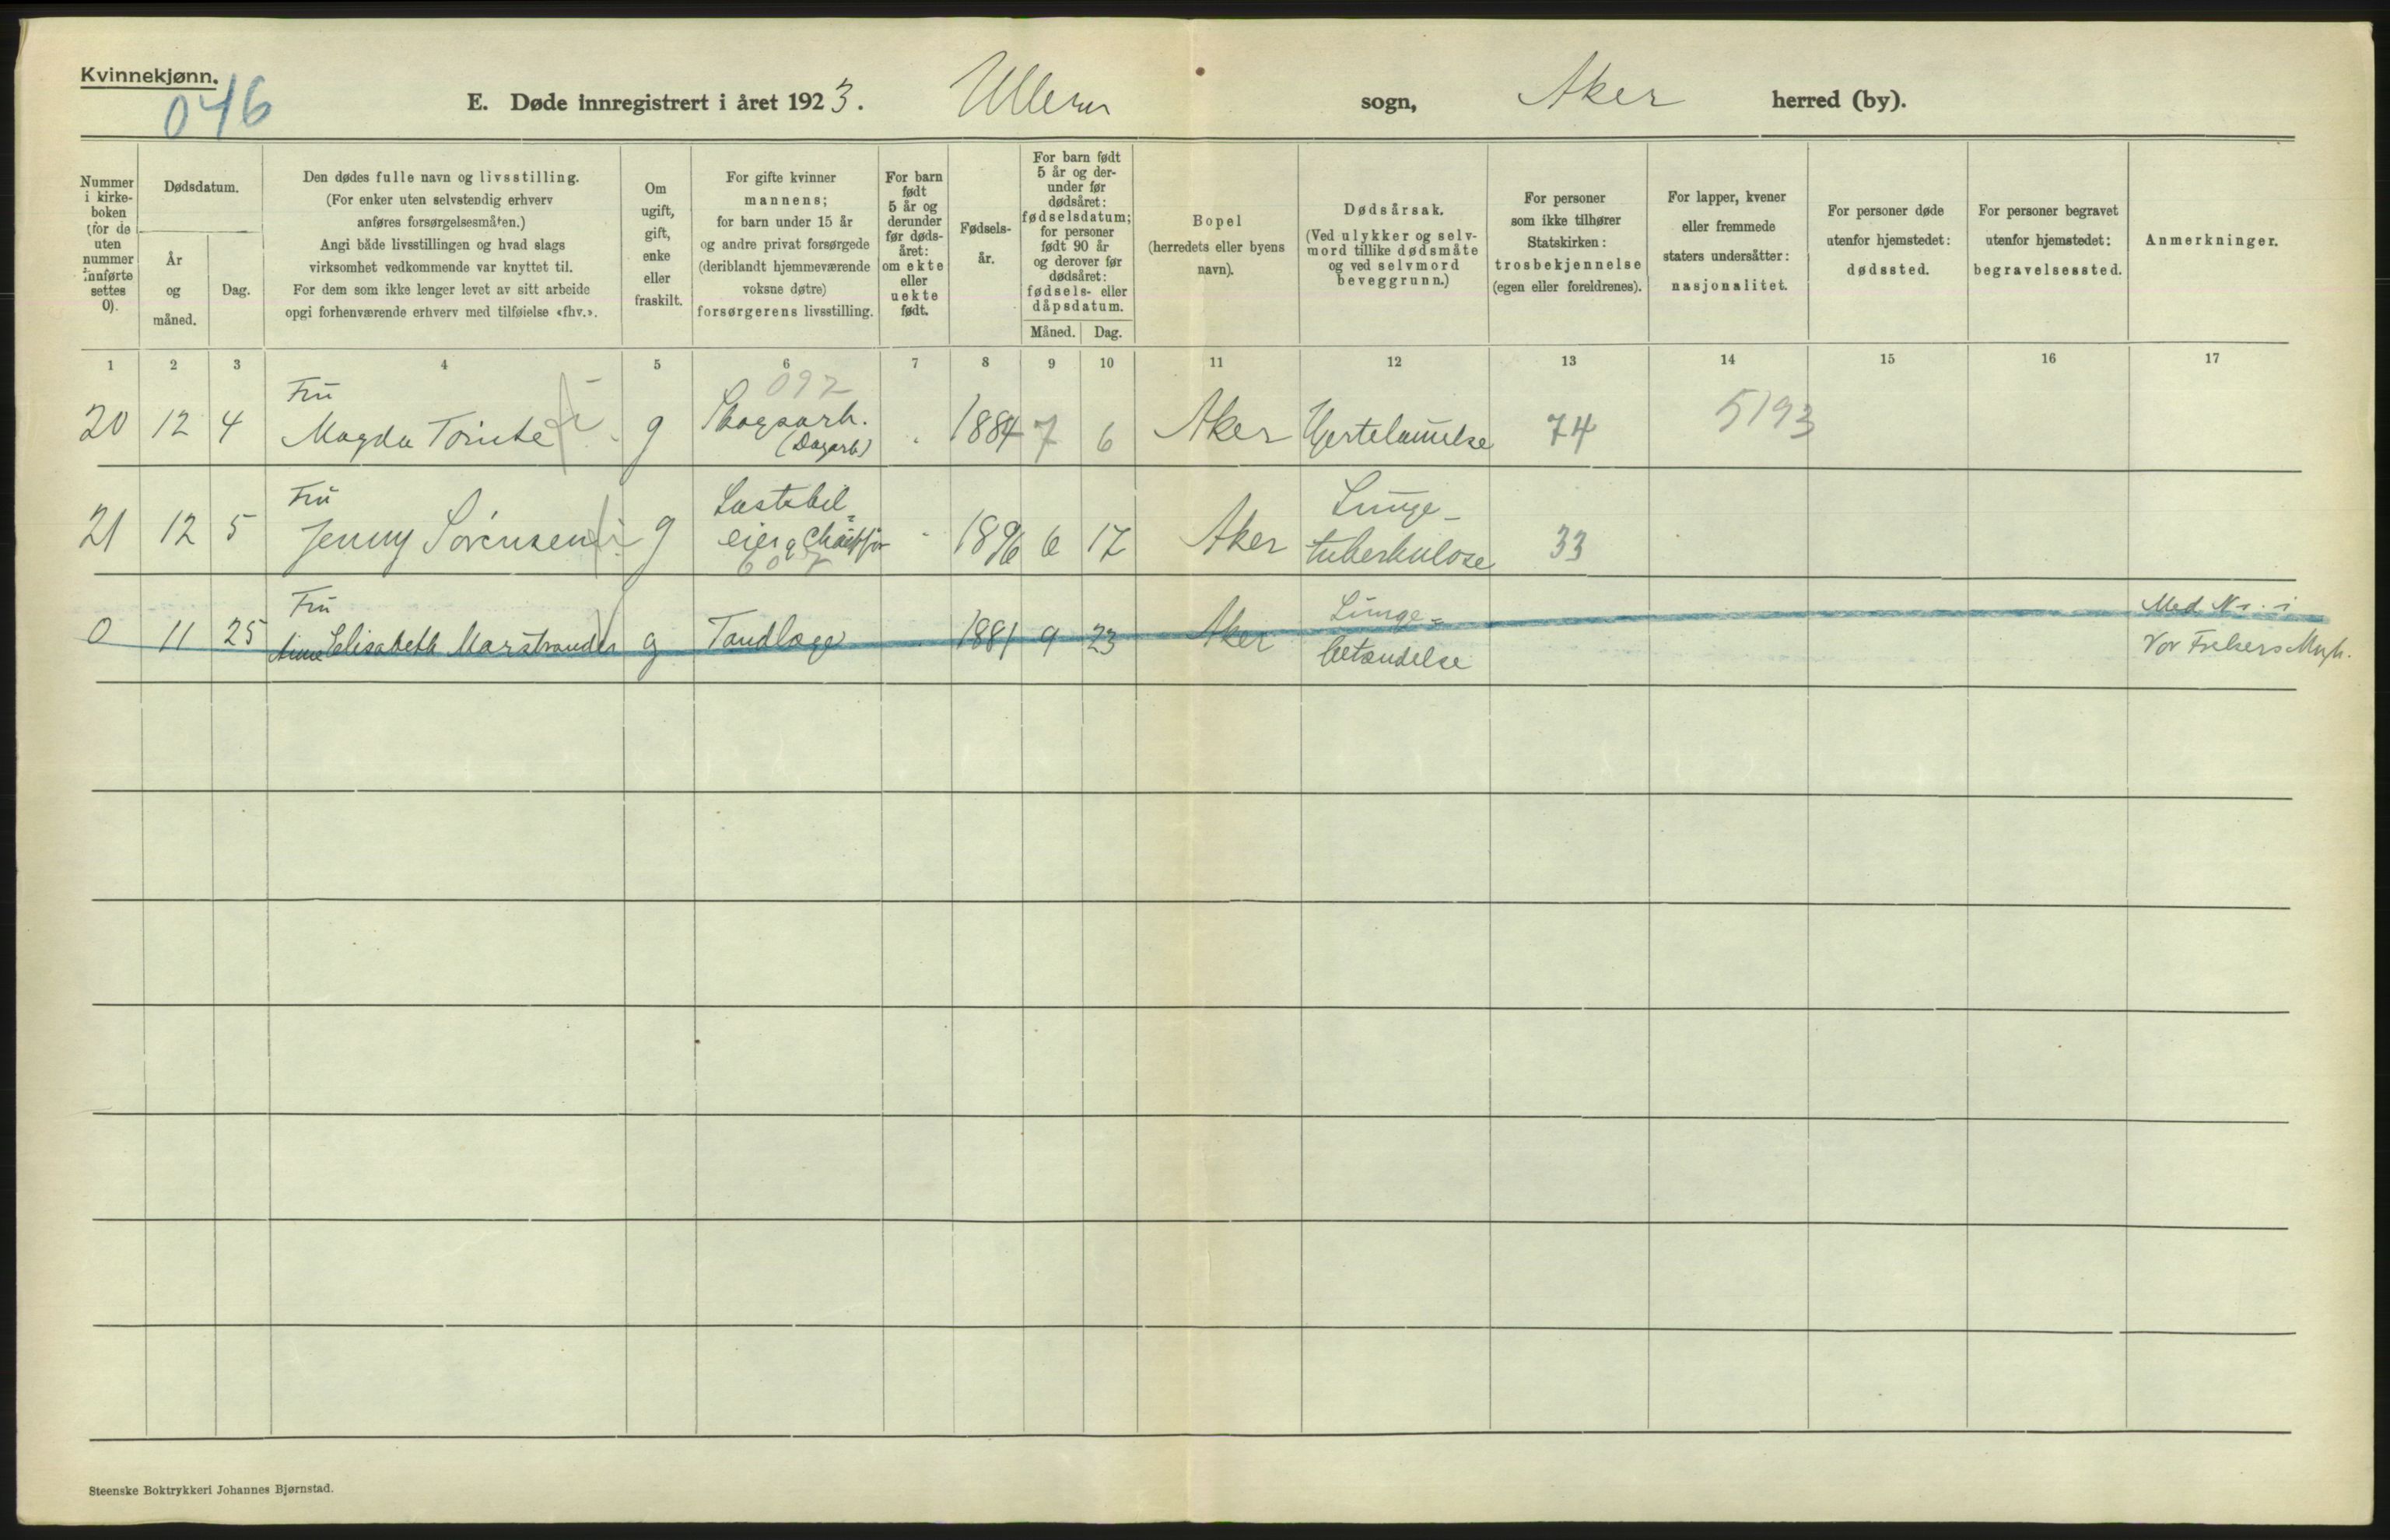 Kvinnekjønn.
046
E. Døde innregistrert i året 1923. Ullern sogn, Aker herred (by).
Nummer i kirke- boken (for de uten nummer innførte settes 0).
Dødsdatum.
År og måned.
Dag.
Den dødes fulle navn og livsstilling.
(For enker uten selvstendig erhverv
anføres forsørgelsesmåten.)
Angi både livsstillingen og hvad slags
virksomhet vedkommende var knyttet til.
For dem som ikke lenger levet av sitt arbeide
opgi forhenværende erhverv med tilføielse «fhv.».
Om ugift, gift, enke eller fraskilt.
For gifte kvinner
mannens;
for barn under 15 år
og andre privat forsørgede
(deriblandt hjemmeværende
voksne døtre)
forsørgerens livsstilling.
For barn født 5 år og derunder før døds- året: om ekte eller uekte født.
Fødsels- år.
For barn født 5 år og der- under før dødsåret: fødselsdatum; for personer født 90 år og derover før dødsåret: fødsels- eller dåpsdatum.
Måned. Dag.
Bopel
(herredets eller byens
navn).
Dødsårsak.
(Ved ulykker og selv-
mord tillike dødsmåte
og ved selvmord
beveggrunn.)
For personer
som ikke tilhører
Statskirken:
trosbekjennelse
(egen eller foreldrenes).
For lapper, kvener
eller fremmede
staters undersåtter:
nasjonalitet.
For personer døde
utenfor hjemstedet:
dødssted.
For personer begravet
utenfor hjemstedet:
begravelsessted.
Anmerkninger.
1 2 3 4 5 6 7 8 9 10 11 12 13 14 15 16 17
Fru 092
20 12 4 Magda g Skogsarb. 1884 7 6 Aker 74 5193
(Dagarb)
Fru Lastebil= Lunge-
21 12 5 Jenny Sørensen g eier 1896 6 17 Aker tuberkulose 33
Fru Lunge= Med Nr. i
0 11 25 Elisabeth Marstrander g Tandlæge 1881 9 23 Aker betændelse Vor Frelsers
Steenske Boktrykkeri Johannes Bjørnstad.